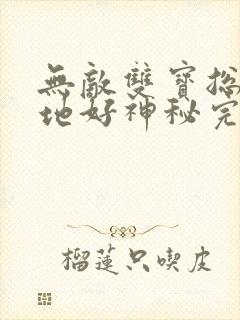 無敵雙寶拋
地好神秘完
榴蓮只喫皮